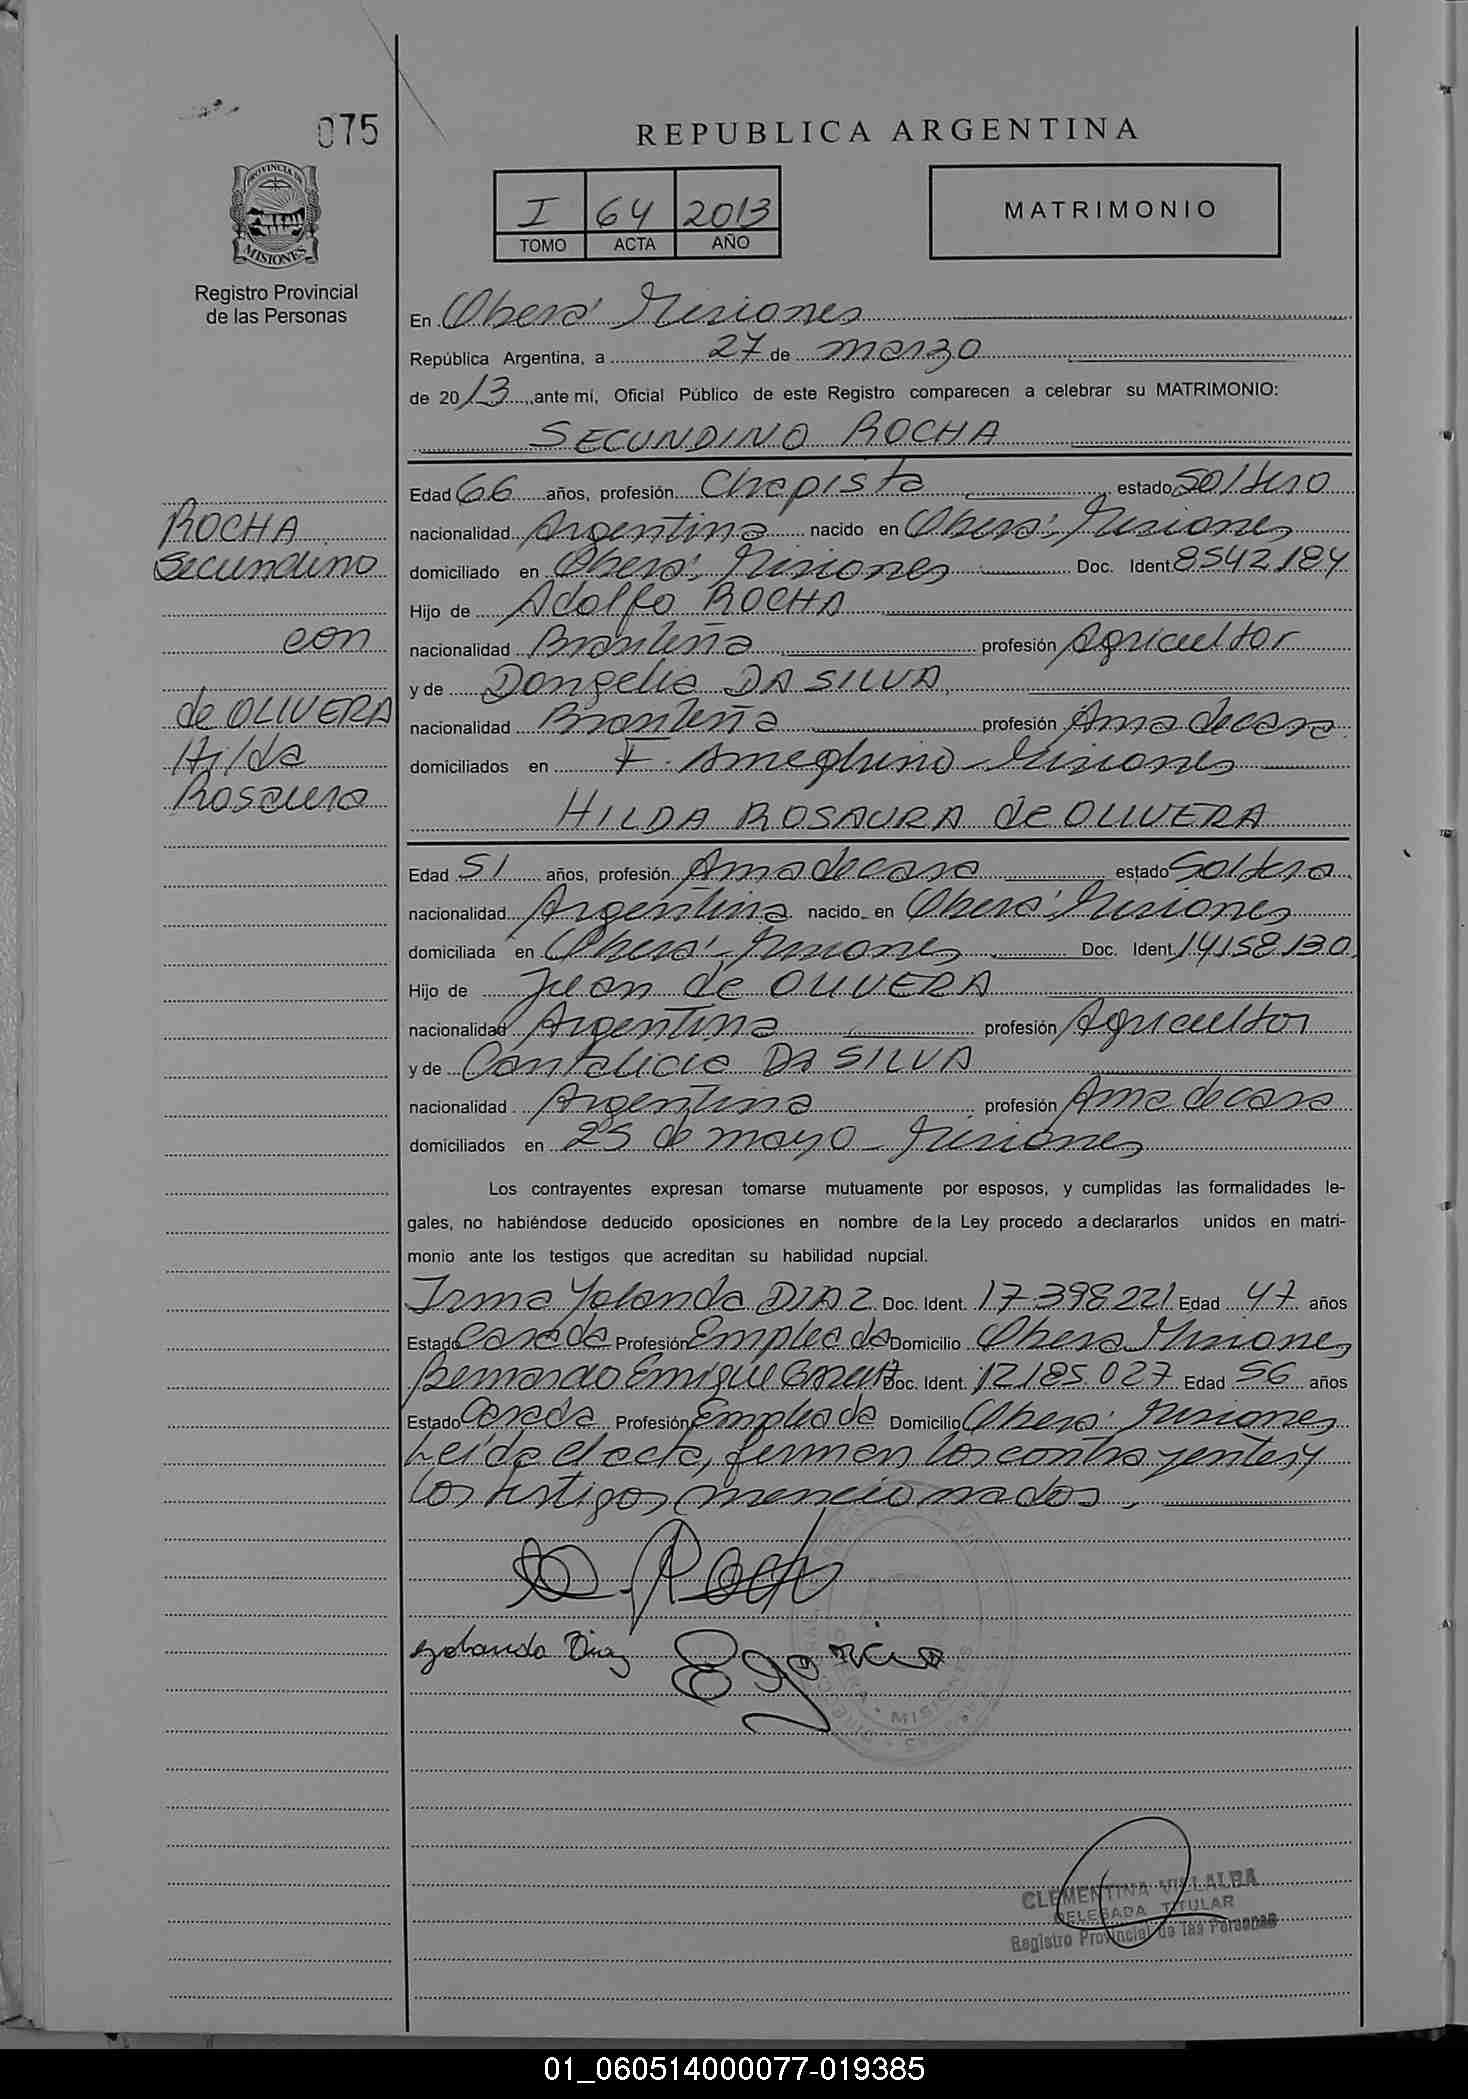 075
REPUBLICA ARGENTINA
PROVINCIA DE
MISIONES
Registro Provincial
de las Personas
I 64 2013
TOMO ACTA AÑO
MATRIMONIO
En Oberá Misiones
República Argentina, a 27 de marzo
de 2013, ante mí, Oficial Público de este Registro comparecen a celebrar su MATRIMONIO:
SECUNDINO ROCHA
Edad 66 años, profesión Chapista estado soltero
nacionalidad Argentina nacido en Oberá Misiones
domiciliado en Oberá Misiones Doc. Ident 8542184
Hijo de Adolfo ROCHA
nacionalidad Brasileña profesión Agricultor
y de Dongelia DA SILVA
nacionalidad Brasileña profesión Ama de casa
domiciliados en F. Ameghino - Misiones
ROCHA
Secundino
con
de OLIVERA
Hilda
Rosaura
HILDA ROSAURA de OLIVERA
Edad 51 años, profesión Ama de casa estado Soltera
nacionalidad Argentina nacido en Oberá Misiones
domiciliada en Oberá Misiones Doc. Ident 14.158.130
Hijo de Juan de OLIVERA
nacionalidad Argentina profesión Agricultor
y de Cantalicia DA SILVA
nacionalidad Argentina profesión Ama de casa
domiciliados en 25 de mayo - Misiones
Los contrayentes expresan tomarse mutuamente por esposos, y cumplidas las formalidades le-
gales, no habiéndose deducido oposiciones en nombre de la Ley procedo a declararlos unidos en matri-
monio ante los testigos que acreditan su habilidad nupcial.
Irma Yolanda DIAZ Doc. Ident. 17.398.221 Edad 47 años
Estado Casada Profesión Empleada Domicilio Oberá Misiones
Bernardo Enrique Doc. Ident. 12.185.027 Edad 56 años
Estado Casada Profesión Empleada Domicilio Oberá Misiones
Leída el acta, firman los contrayentes y
los testigos mencionados.
Rocha
Yolanda Diaz
MISIONES
CLEMENTINA VILLALBA
DELEGADA TITULAR
Registro Provincial de las Personas
01_060514000077-019385